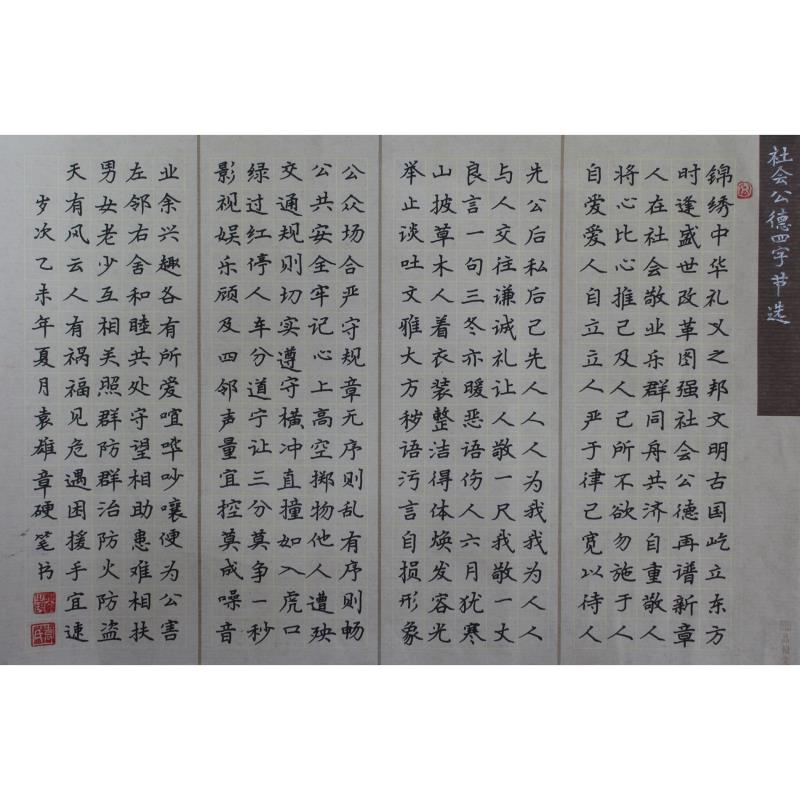 社会公德四字书选
锦绣中华礼义之邦文明古国屹立东方
时逢盛世改革图强社会公德再谱新章
人在社会敬业乐群同舟共济自重敬人
将心比心推己及人己所不欲勿施于人
自爱爱人自立立人严于律己宽以待人
先公后私后己先人人人为我我为人人
与人交往谦诚礼让人敬一尺我敬一丈
良言一句三冬亦暖恶语伤人六月犹寒
山披草木人着衣装整洁得体焕发容光
举止谈吐文雅大方秽语污言自损形象
公众场合严守规章无序则乱有序则畅
公共安全牢记心上高空掷物他人遭殃
交通规则切实遵守横冲直撞如入虎口
绿过红停人车分道宁让三分莫争一秒
影视娱乐顾及四邻声量宜控莫成噪音
业余兴趣各有所爱喧哗吵嚷便为公害
左邻右舍和睦共处守望相助患难相扶
男女老少互相关照群防群治防火防盗
天有风云人有祸福见危遇困援手宜速
岁次乙未年夏月袁雄章硬笔书